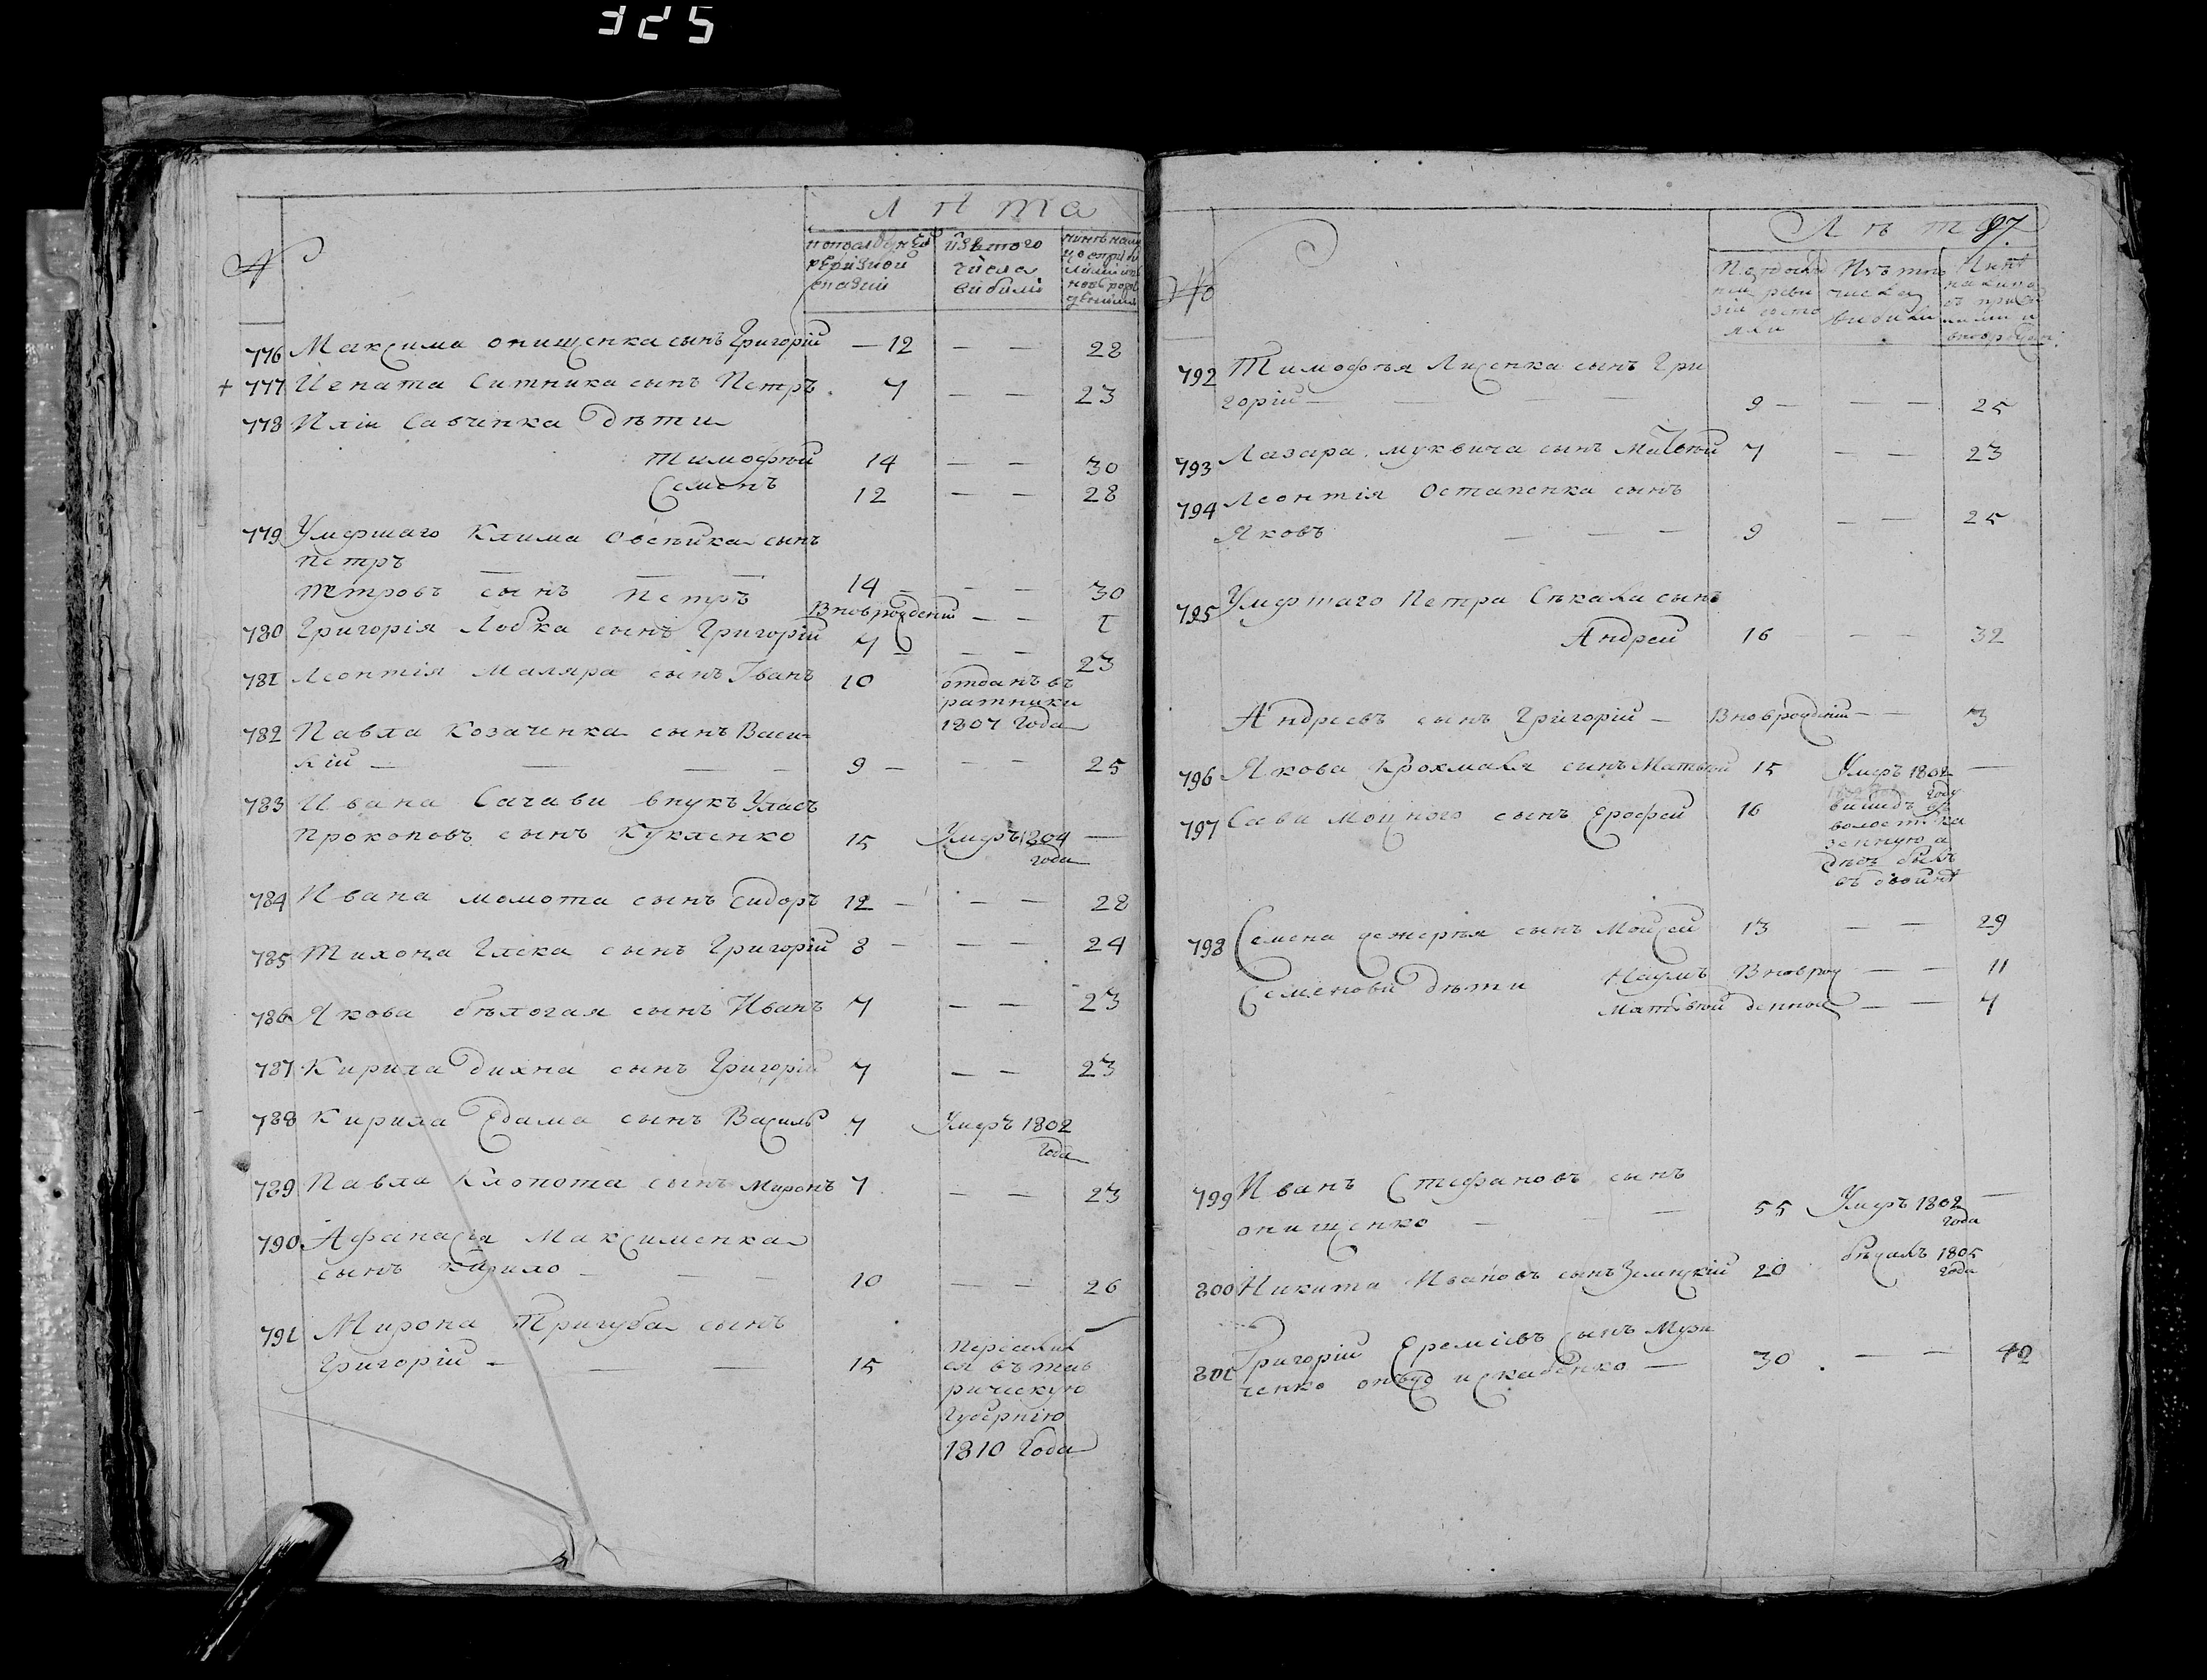 325
№
Лѣта
по последней ревизской сказки
изъ того числа выбыли
776 Максима Онищенка сынъ Григорій — 12 — — 28
+ 777 Игната Ситника сынъ Петръ 7 — — 23
778 Иліи Савченка дѣти
Тимофѣй 14 — — 30
Семенъ 12 — — 28
779 Умершаго Клима Овсѣйка сынъ
Петръ — — — 14 — — — 30
Петровъ сынъ Петръ Вноврожденій — — 1
780 Григорія Лобка сынъ Григорій 7 — — — 23
781 Леонтія Маляра сынъ Иванъ 10 отданъ въ
ратники
1807 Года
782 Павла Козаченка сынъ Васи
лій — — — — 9 — — — 25
783 Ивана Сачави внукъ Уласъ
Прокоповъ сынъ Кукленко 15 Умеръ 1804 —
года
784 Ивана Момота сынъ Сидоръ 12 — — — 28
785 Тихона Глека сынъ Григорій 8 — — — 24
786 Якова Бѣлогая сынъ Иванъ 7 — — 23
787 Кирила Дихна сынъ Григорій 7 — — 23
788 Кирила Едама сынъ Василь 7 Умеръ 1802
года
789 Павла Клопота сынъ Миронъ 7 — — 23
790 Афанасія Максименка
сынъ Кирило — — — 10 — — 26
791 Мирона Тригуба сынъ
Григорій — — — 15 Переселил
ся въ тав
рическую
Губернію
1810 Года
97
№
Лѣта
792 Тимофѣя Лисенка сынъ Гри
горій — — — — 9 — — — 25
793 Лазара Муквича сынъ Матвѣй 7 — — 23
794 Леонтія Остапенка сынъ
Яковъ — — — 9 — — 25
795 Умершаго Петра Секала сынъ
Андрей 16 — — — 32
Андреевъ сынъ Григорій — Вноврожденій — — 3
796 Якова Крохмаля сынъ Матвѣй 15 Умеръ 1802 —
году
797 Сави Моцного сынъ Ерофей 16
798 Семена Дежерѣя сынъ Мойсей 13 — — 29
Семенови дѣти Наумъ Вноврож — — 11
Матвѣй денной — — 7
799 Иванъ Стефановъ сынъ
Онищенко — — — 55 Умеръ 1802 —
года
800 Никита Ивановъ сынъ Зелинскій 20 бѣжалъ 1805
года
801 Григорій Еремѣевъ сынъ Музи
ченко — 30 — — 42